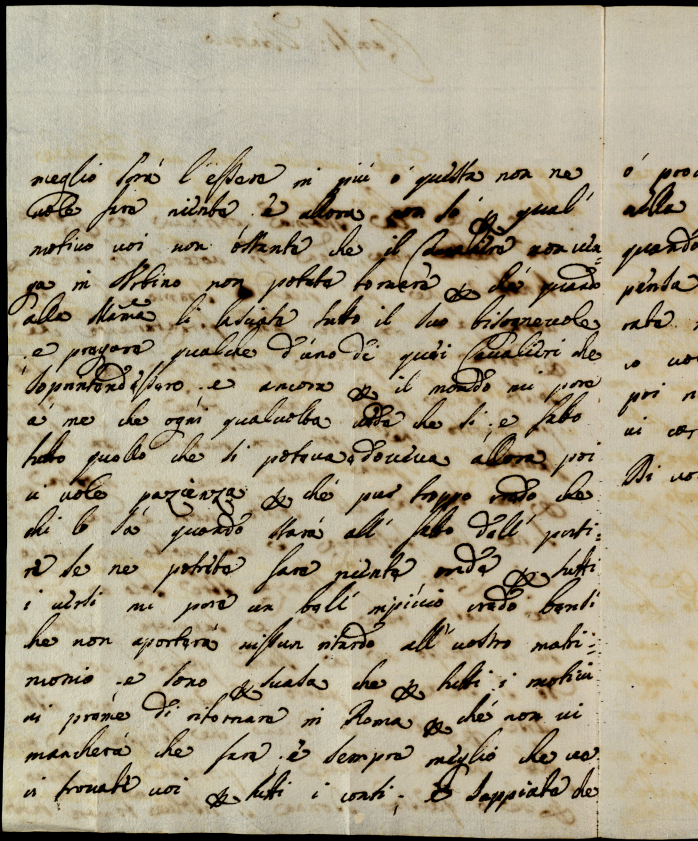 meglio sarà l'essere in più o questa non ne
vole fare niente e allora non so p qual
motivo voi non ostante che il Cavaliere non ven=
ga in Urbino non potete tornare p ché quando
alla Mama li lasciate tutto il suo bisognevole
e pregare qualche d'uno di quei Cavalieri che
soprintendessero e ancora p il mondo mi pare
a me che ogni qualvolta veda che si e fatto
tutto quello che si poteva e doveva allora poi
vi vole pazienza p ché pur troppo vedo che
chi lo sà quando starà all' fatto dell' parti=
re se ne potrete fare niente p tutti
i versi mi pare un bell' inpicio vedo bensi
che non aporterà nissun ritardo all' vostro matri=
monio e sono p suasa che p tutti i motivi
vi prême di ritornare in Roma p ché non vi
mancherà che fare e sempre meglio che ve
ci trovate voi p tutti i conti, e sappiate che
ó
nella
quando
pensa
rete
io
poi
vi
Di